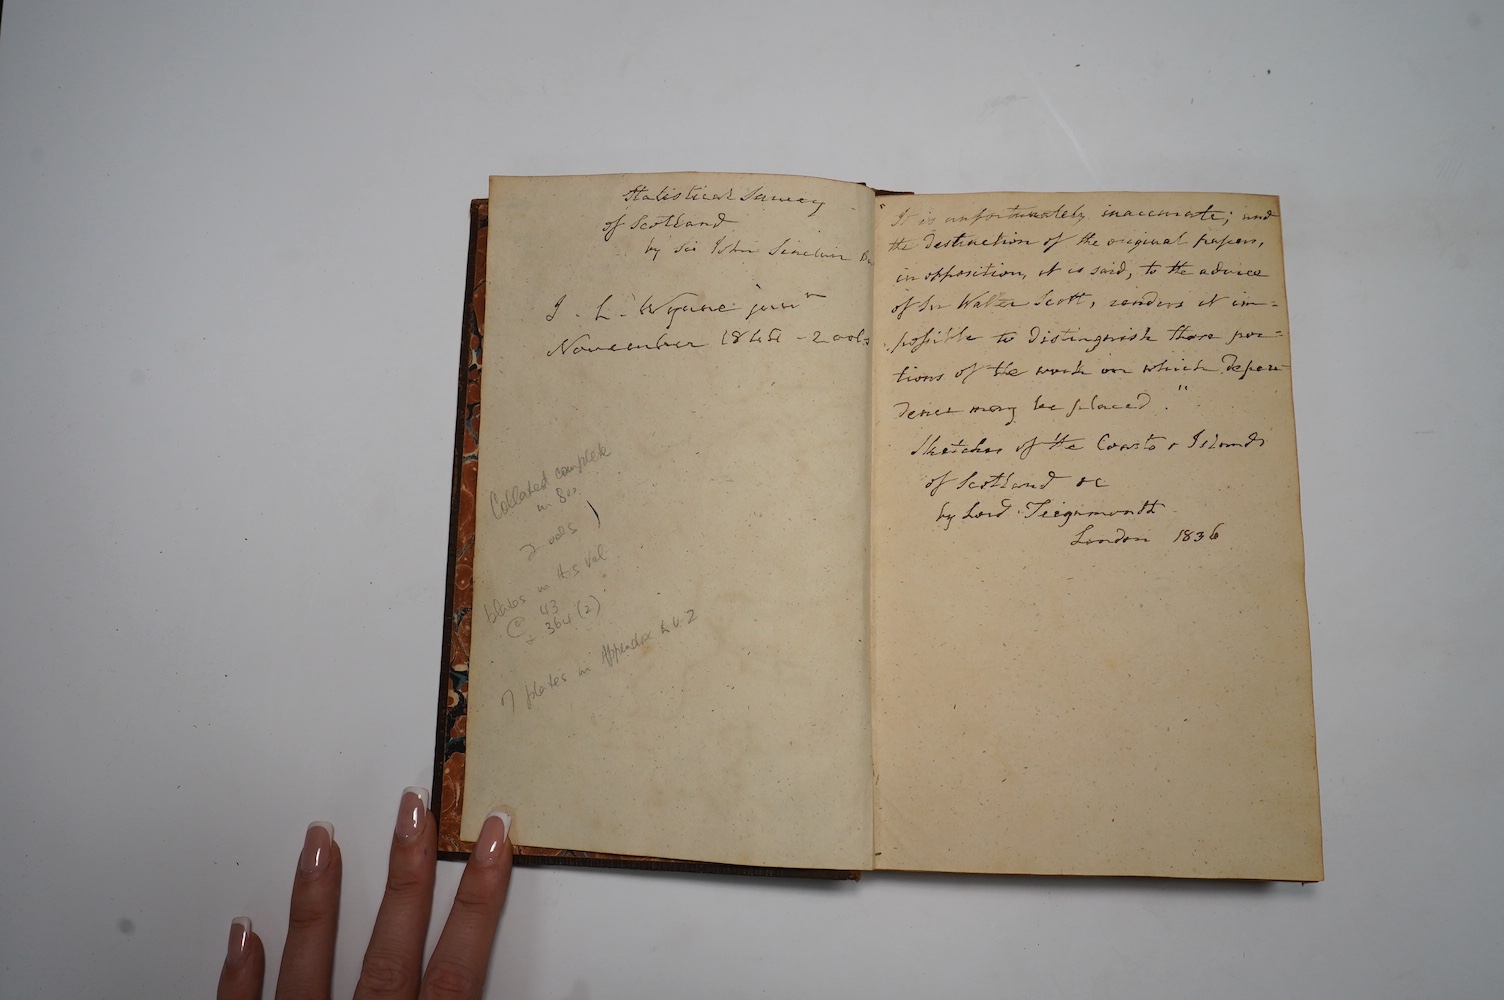 Statistical Survey
of Scotland
by Sir John Sinclair
J. L. Wynne junr
November 18 - 2 vols
Collated complete
in 8vo.
2 vols )
plates in this vol
@ 43
+ 364 (2)
7 plates in Appendix to v. 2
"It is unfortunately inaccurate; and
the destruction of the original papers,
in opposition, it is said, to the advice
of Sir Walter Scott, renders it im=
possible to distinguish those por=
tions of the work on which depen=
dence may be placed."
Sketches of the Coasts & Islands
of Scotland &c
by Lord Teignmouth
London 1836